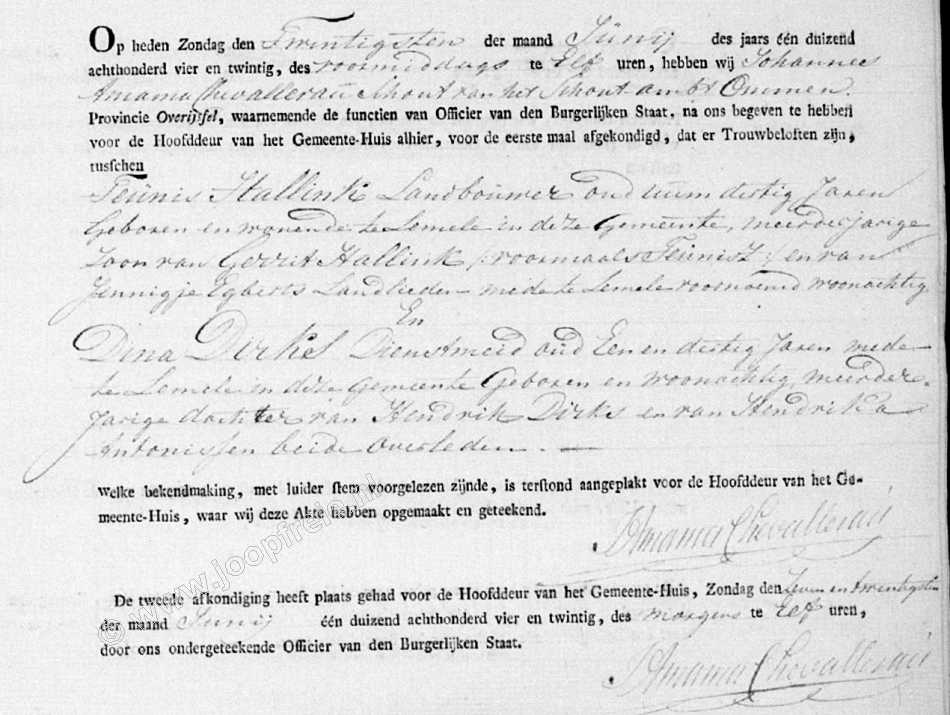 Op heden Zondag den Twintigsten der maand Junij des jaars één duizend
achthonderd vier en twintig, des voormiddags te Elf uren, hebben wij Johannes
Amama Chevallerau Schout van het Schout ambt Ommen.
Provincie Overijssel, waarnemende de functien van Officier van den Burgerlijken Staat, na ons begeven te hebben
voor de Hoofddeur van het Gemeente-Huis alhier, voor de eerste maal afgekondigd, dat er Trouwbeloften zijn,
tusschen
Teunis Hallink Landbouwer oud ruim dertig Jaren
Geboren en wonende te Lemele in deze Gemeente, meerderjarige
Zoon van Gerrit Hallink /:voormaals Teunisz:/ en van
Jennigje Egberts Landlieden mede te Lemele voornoemd woonachtig
En
Dina Dirks Dienstmeid oud Een en dertig Jaren mede
te Lemele in deze Gemeente Geboren en woonachtig, meerder-
jarige dochter van Hendrik Dirks en van Hendrika
Antonissen beide Overleden. —
Welke bekendmaking, met luider stem voorgelezen zijnde, is terstond aangeplakt voor de Hoofddeur van het Ge-
meente-Huis, waar wij deze Akte hebben opgemaakt en geteekend.
J Amama Chevallerau
De tweede afkondiging heeft plaats gehad voor de Hoofddeur van het Gemeente-Huis, Zondag den Zeven en Twintigsten
der maand Junij één duizend achthonderd vier en twintig, des morgens te Elf uren,
door ons ondergeteekende Officier van den Burgerlijken Staat.
J Amama Chevallerau